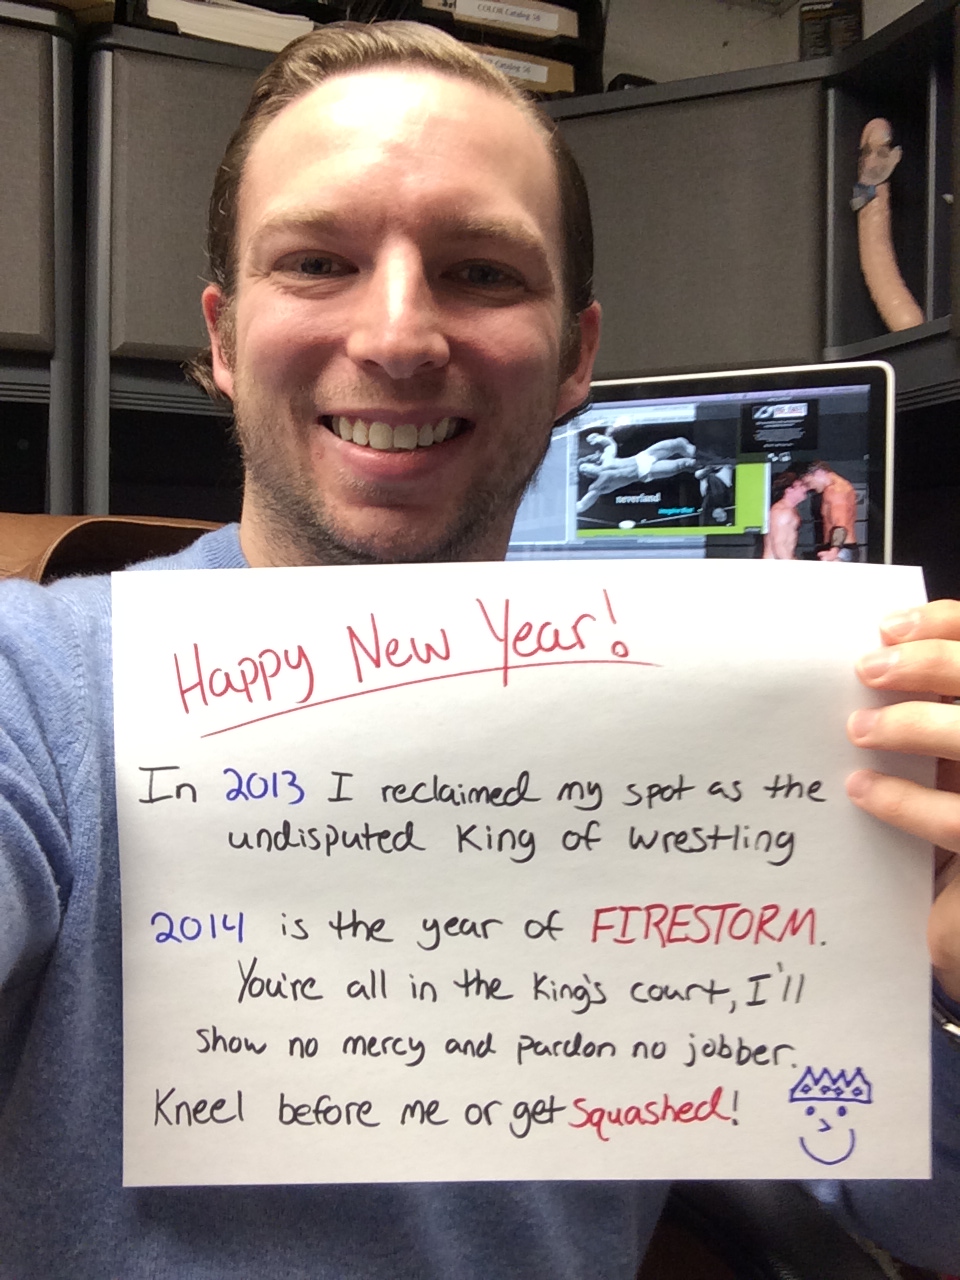 COLOR Catalog 56
Catalog 56
neverland
Happy New Year!
In 2013 I reclaimed my spot as the
undisputed King of wrestling
2014 is the year of FIRESTORM.
You're all in the King's court, I'll
show no mercy and pardon no jobber.
Kneel before me or get Squashed!